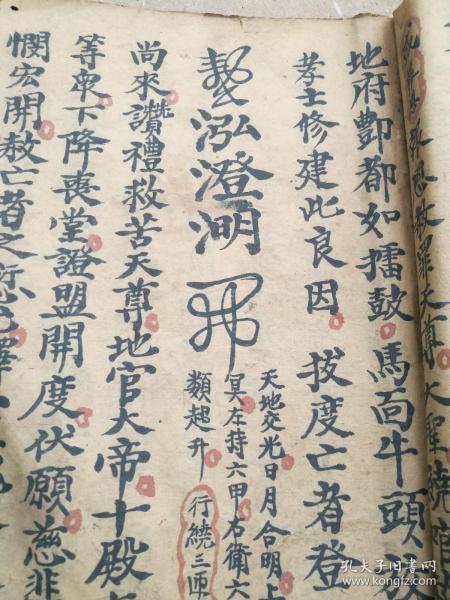 救罪天尊大聖繞
地府酆都如擂鼓馬面牛頭
孝士修建此良因拔度亡者登
天地交光日月合明上
冥左持六甲右衛六
類超升行繞三匝
泓澄湖
尚來讚禮救苦天尊地官大帝十殿
等衆下降喪堂證盟開度伏願慈悲
憫宏開赦亡者之
孔夫子旧书网